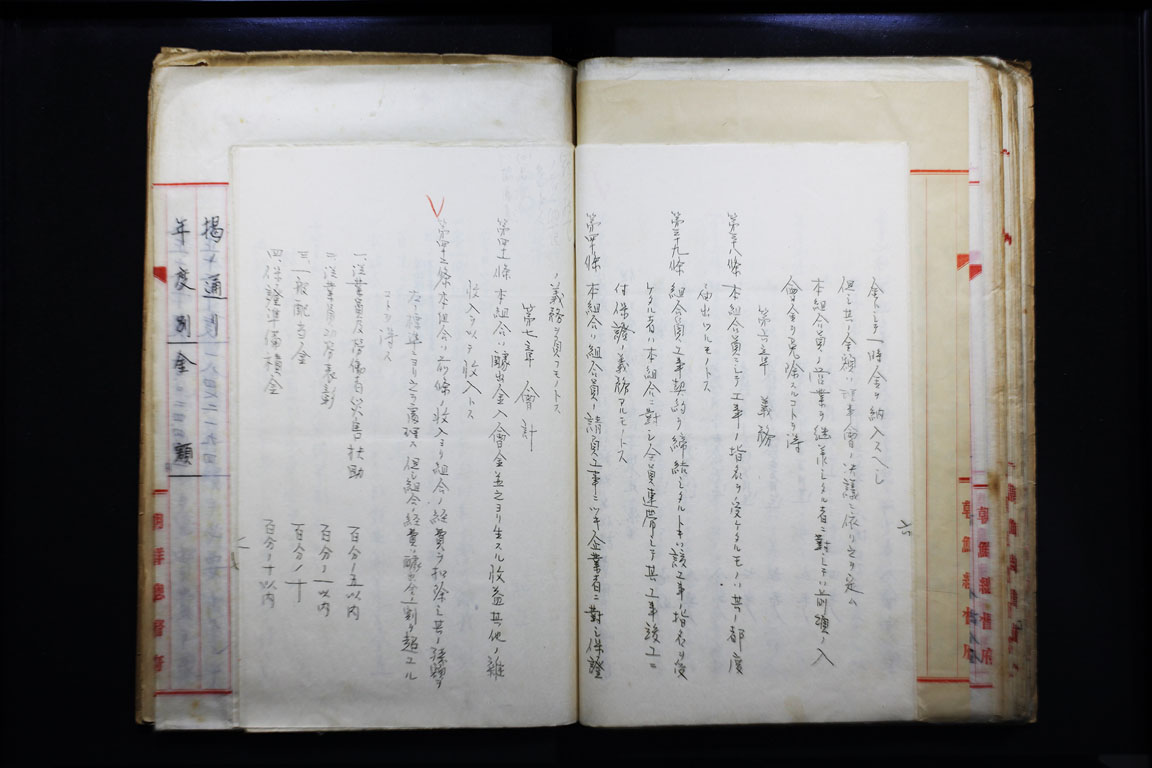 金トシテ一時金ヲ納入スヘシ
但シ其ノ金額ハ理事會ノ決議ニ依リ之ヲ定ム
本組合員ノ営業ヲ継承シタル者ニ對シテハ前項ノ入
會金ヲ免除スルコトヲ得
第六章 義務
第三十八條 本組合員ニシテ工事ノ指名ヲ受ケタルモノハ其ノ都度
届出ツルモノトス
第三十九條 組合員工事契約ヲ締結シタルトキハ該工事ノ指名ヲ受
ケタル者ハ本組合ニ對シ全員連帯シテ其ノ工事竣工ニ
付保證ノ義務アルモノトス
第四十條 本組合ハ組合員ノ請負工事ニツキ企業者ニ對シ保證
ノ義務ヲ負フモノトス
第七章 會計
第四十一條 本組合ハ醵出金入會金並之ヨリ生スル收益其他ノ雜
收入ヲ以テ收入トス
第四十二條 本組合ハ前條ノ收入ヨリ組合ノ経費ヲ扣除シ其ノ残額ヲ
左ノ標準ニヨリ之ヲ處理ス 但シ組合ノ経費ハ醵出金ノ一割ヲ超ユル
コトヲ得ス
一、從業員及労働者災害扶助 百分ノ五以内
二、從業員及労働者表彰 百分ノ一以内
三、一般配当金 百分ノ十
四、保證準備積金 百分ノ十以内
揭通
年度別金額
朝鮮總督府